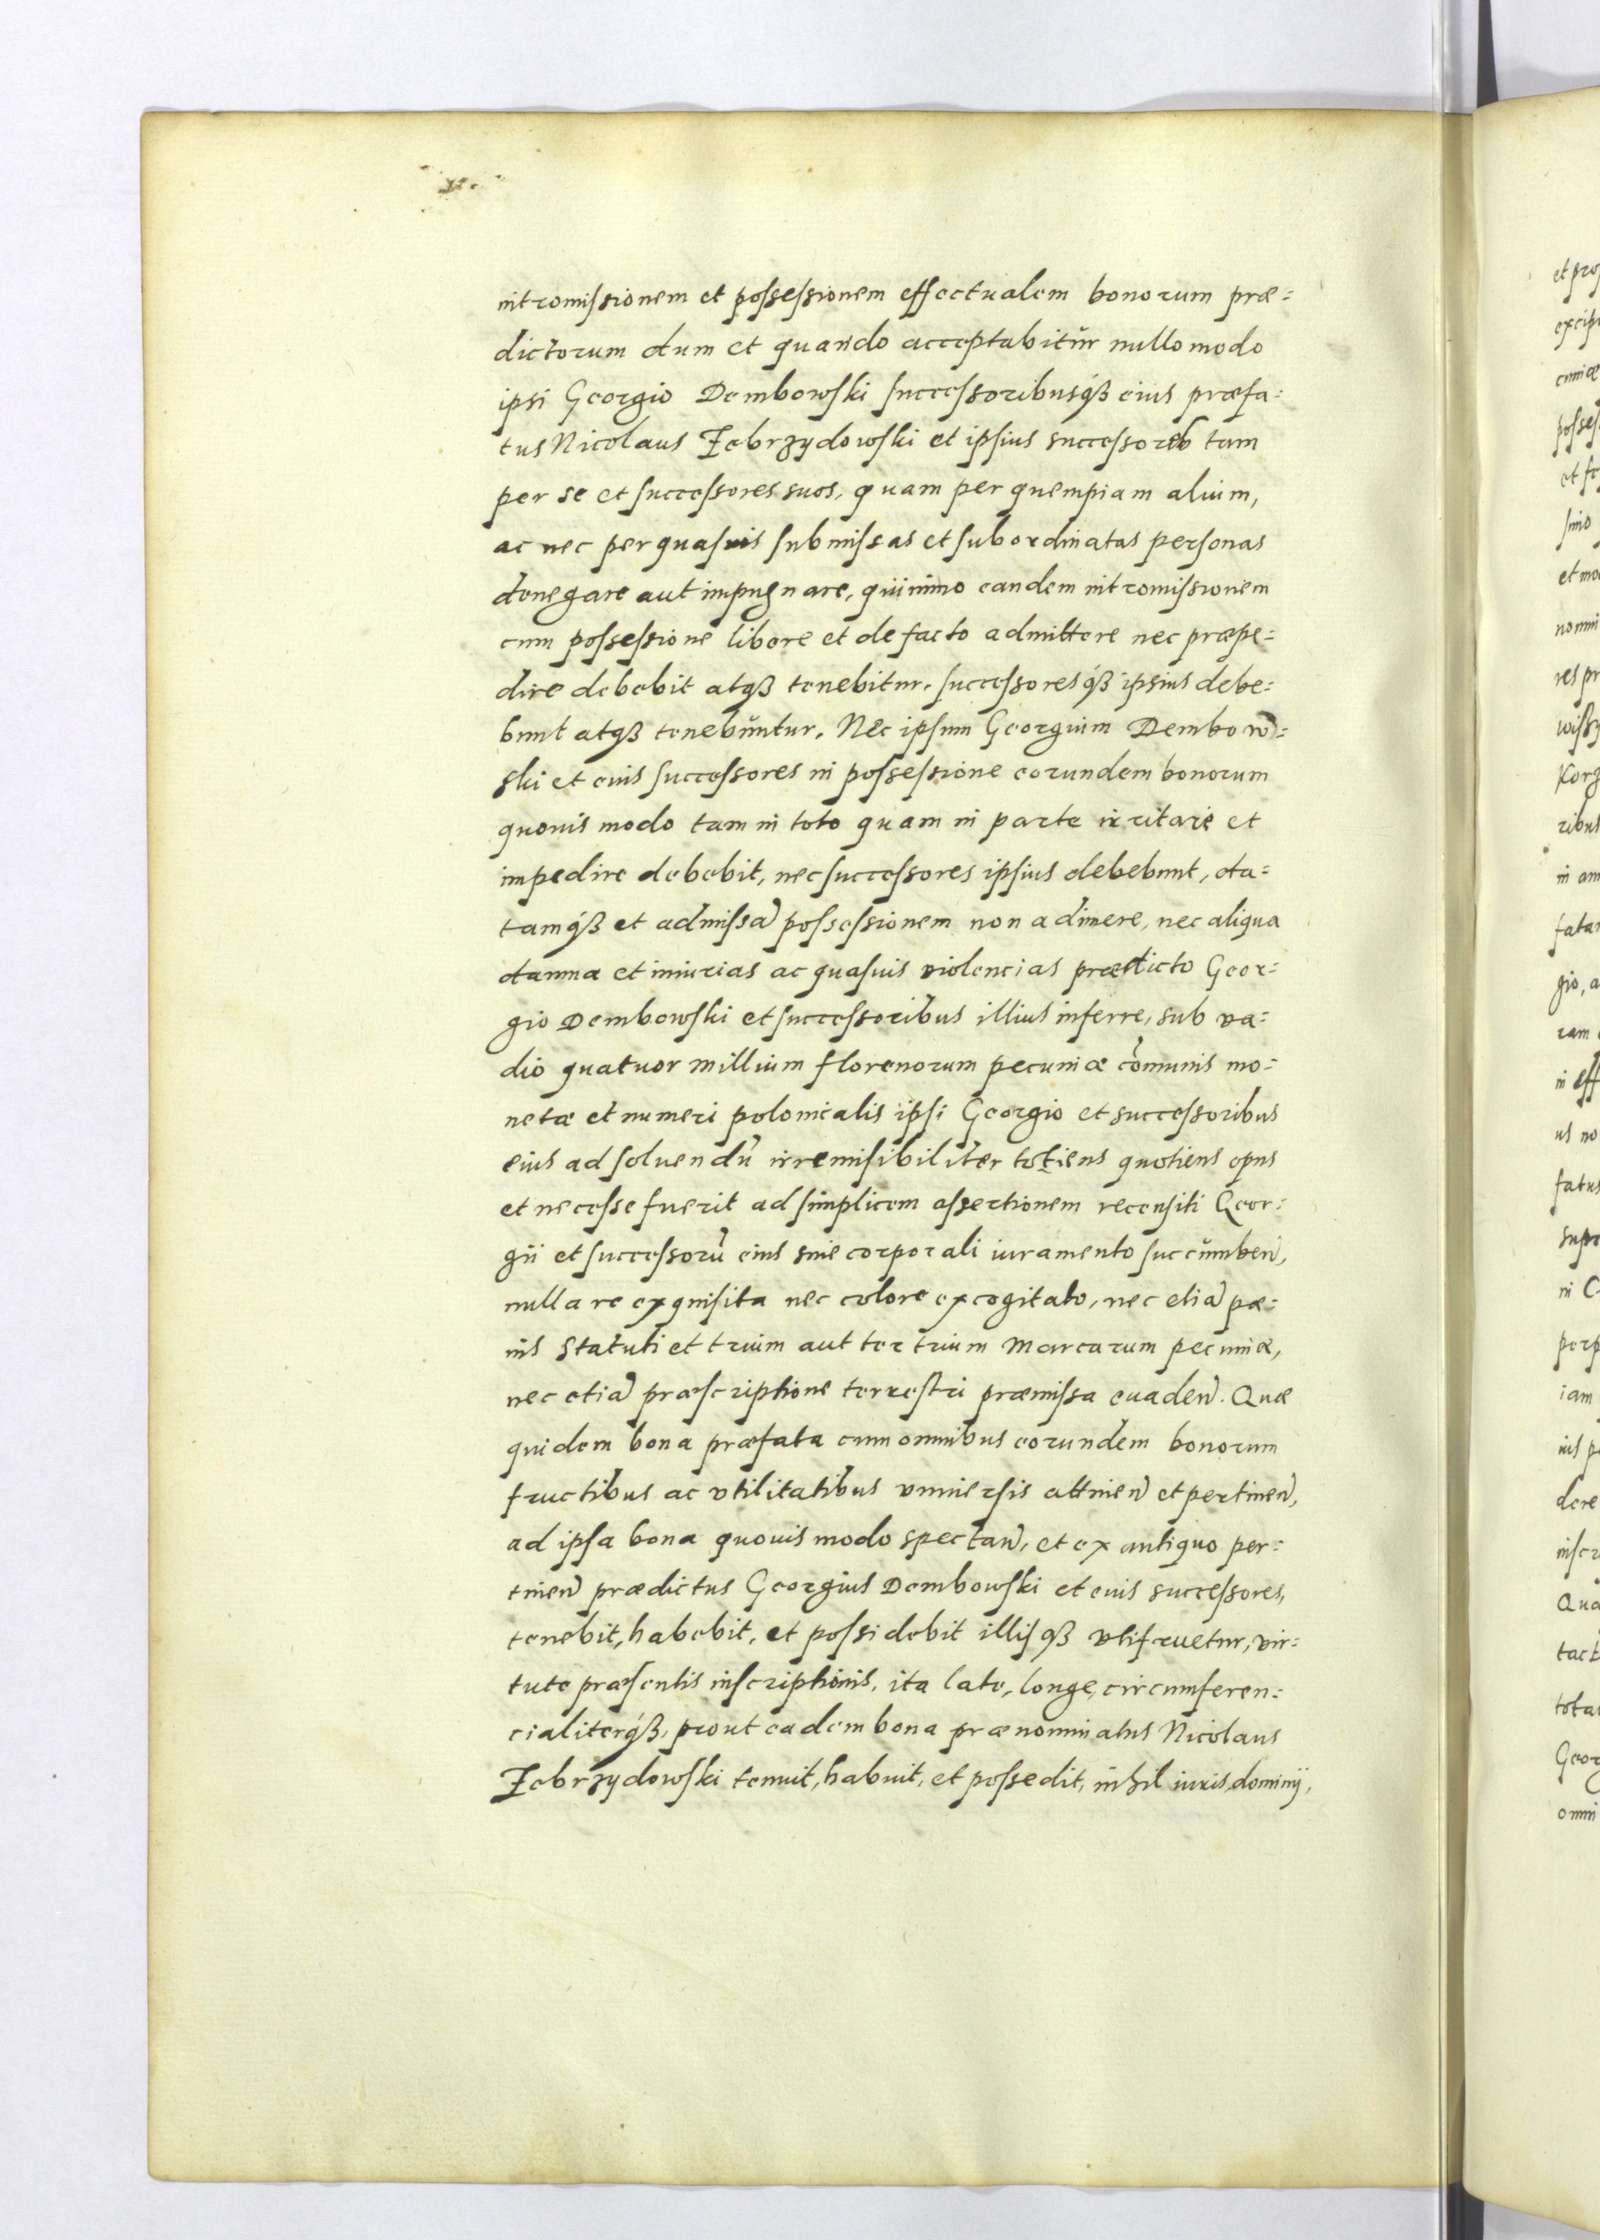 intromissionem et possessionem effectualem bonorum præ=
dictorum dum et quando acceptabitur nullo modo
ipsi Georgio Dembowski successoribusqꝫ eius præfa=
tus Nicolaus Zebrzydowski et ipsius successores tam
per se et successores suos, quam per quempiam alium,
ac nec per quasuis submissas et subordinatas personas
denegare aut impugnare, quinimo eandem intromissionem
cum possessione libere et de facto admittere nec præpe=
dire debebit atqꝫ tenebitur, successoresqꝫ ipsius debe=
bunt atqꝫ tenebuntur. Nec ipsum Georgium Dembow=
ski et eius successores in possessione eorundem bonorum
quouis modo tam in toto quam in parte irritare et
impedire debebit, nec successores ipsius debebunt, da=
tamqꝫ et admissã possessionem non adimere, nec aliqua
damna et iniurias ac quasuis violencias prædicto Geor=
gio Dembowski et successoribus illius inferre, sub va=
dio quatuor millium florenorum pecuniæ cõmunis mo=
netæ et numeri polonicalis ipsi Georgio et successoribus
eius ad soluendũ irremisibiliter totiens quotiens opus
et necesse fuerit ad simplicem assertionem recensiti Geor=
gii et successorũ eius sine corporali iuramento succumben̄,
nulla re exquisita nec colore excogitato, nec etiã pæ=
nis statuti et trium aut ter trium marcarum pecuniæ,
nec etiã præscriptione terrestri præmissa euaden̄. Quæ
quidem bona præfata cum omnibus eorundem bonorum
fructibus ac vtilitatibus vniuersis attinen̄ et pertinen̄,
ad ipsa bona quouis modo spectan̄, et ex antiquo per=
tinen̄ prædictus Georgius Dembowski et eius successores,
tenebit, habebit, et possidebit illisqꝫ vtifruetur, vir=
tute præsentis inscriptionis, ita late, longe, circumferen=
cialiterqꝫ, prout eadem bona prænominatus Nicolaus
Zebrzydowski tenuit, habuit, et possedit, nihil iuris, dominij,